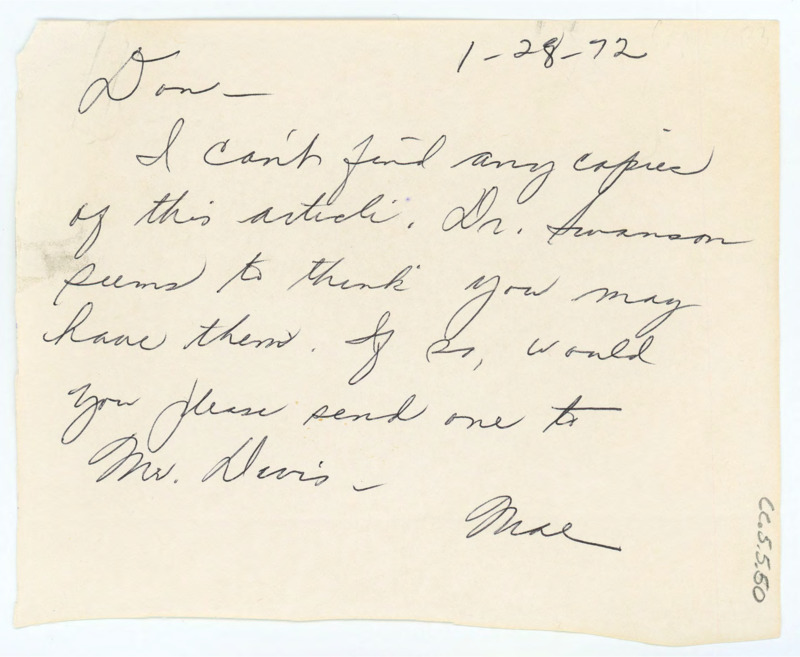 1-28-72
Don—
I can't find any copies
of this article. Dr. Swanson
seems to think you may
have them. If so, would
you please send one to
Mr. Davis—
Mae
CC.5.5.50